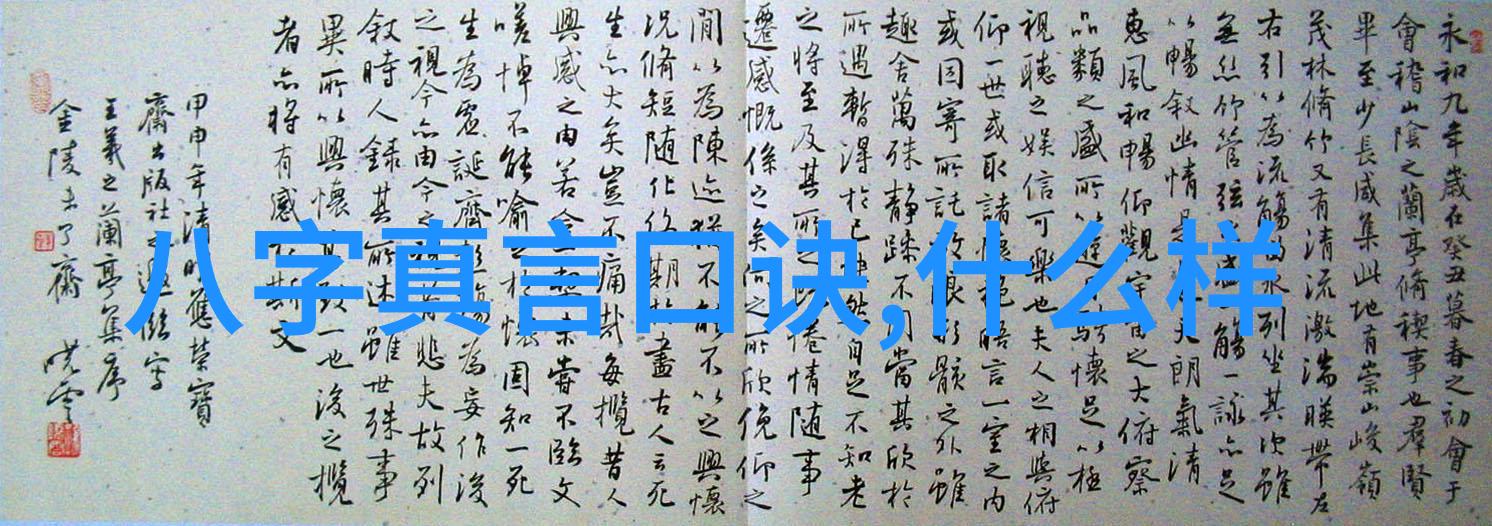 永和九年歲在癸丑暮春之初會于
會稽山陰之蘭亭脩稧事也群賢
畢至少長咸集此地有崇山峻嶺
茂林脩竹又有清流激湍暎帶左
右引以為流觴曲水列坐其次雖
無絲竹管弦之盛一觴一詠亦足
以暢敘幽情是日也天朗氣清
惠風和暢仰觀宇宙之大俯察
品類之盛所以遊目騁懷足以極
視聽之娛信可樂也夫人之相與俯
仰一世或取諸懷抱晤言一室之內
或因寄所託放浪形骸之外雖
趣舍萬殊靜躁不同當其欣於
所遇暫得於己快然自足不知老
之將至及其所之既倦情隨事
遷感慨係之矣向之所欣俛仰之
間以為陳迹猶不能不以之興懷
況脩短隨化終期於盡古人云死
生亦大矣豈不痛哉每攬昔人
興感之由若合一契未嘗不臨文
嗟悼不能喻之於懷固知一死
生為虛誕齊彭殤為妄作後
之視今亦由今之視昔悲夫故列
敘時人錄其所述雖世殊事
異所以興懷其致一也後之攬
者亦將有感於斯文
甲申年清明應榮寶
齋出版社之邀臨寫
王羲之蘭亭集序
金陵未了齋
八字真言口诀,什么样